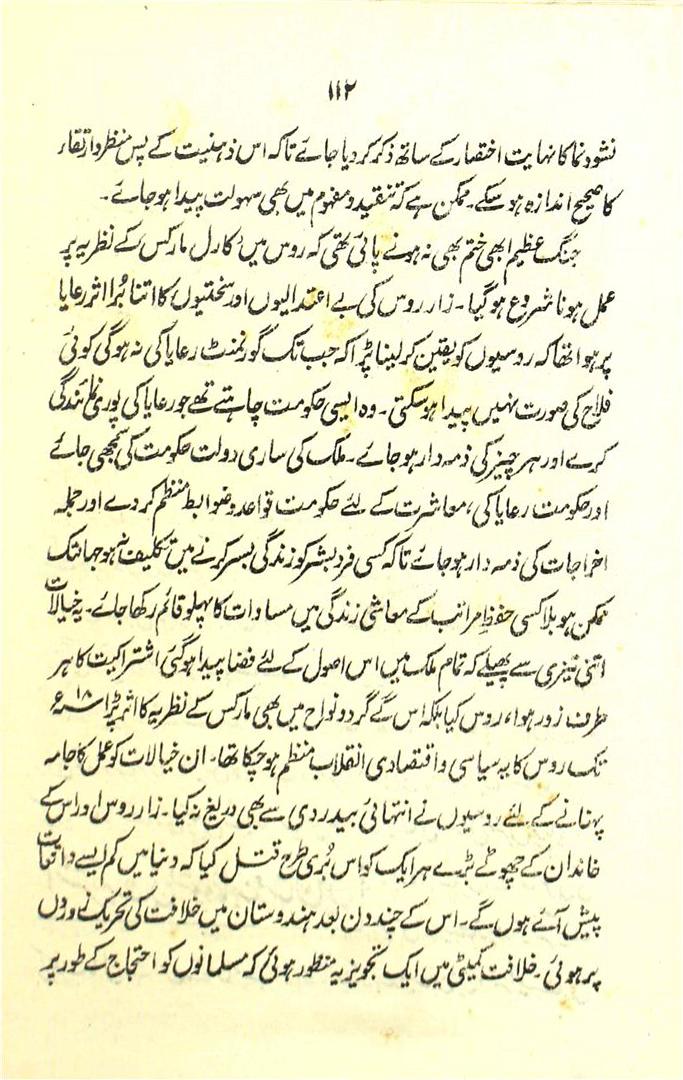 ۱۱۲
نشوونما کا نہایت اختصار کے ساتھ ذکر کر دیا جائے تاکہ اس ذہنیت کے پس منظر وارتقاء
کا صحیح اندازہ ہو سکے۔ ممکن ہے کہ تنقید و مفہوم میں بھی سہولت پیدا ہو جائے۔
جنگ عظیم ابھی ختم بھی نہ ہونے پائی تھی کہ روس میں کارل مارکس کے نظریہ پر
عمل ہونا شروع ہو گیا۔ زار روس کی بے اعتدالیوں اور سختیوں کا اتنا بُرا اثر رعایا
پر ہوا تھا کہ روسیوں کو یقین کر لینا پڑا کہ جب تک گورنمنٹ رعایا کی نہ ہوگی کوئی
فلاح کی صورت نہیں پیدا ہو سکتی۔ وہ ایسی حکومت چاہتے تھے جو رعایا کی پوری نمائندگی
کرے اور ہر چیز کی ذمہ دار ہو جائے۔ ملک کی ساری دولت حکومت کی سمجھی جائے
اور حکومت رعایا کی، معاشرت کے لئے حکومت قواعد و ضوابط منظم کر دے اور جملہ
اخراجات کی ذمہ دار ہو جائے تاکہ کسی فرد بشر کو زندگی بسر کرنے میں تکلیف نہ ہو جہانتک
ممکن ہو بلا کسی حفظِ مراتب کے معاشی زندگی میں مساوات کا پہلو قائم رکھا جائے۔ یہ خیالات
اتنی تیزی سے پھیلے کہ تمام ملک میں اس اصول کے لئے فضا پیدا ہو گئی اشتراکیت کا ہر
طرف زور ہوا، روس کیا بلکہ اس کے گرد و نواح میں بھی مارکس کے نظریہ کا اثر پڑا ۱۸ء
تک روس کا یہ سیاسی و اقتصادی انقلاب منظم ہو چکا تھا۔ ان خیالات کو عمل کا جامہ
پہنانے کے لئے روسیوں نے انتہائی بیدردی سے بھی دریغ نہ کیا۔ زار روس اور اس کے
خاندان کے چھوٹے بڑے ہر ایک کو اس بُری طرح قتل کیا کہ دنیا میں کم ایسے واقعات
پیش آئے ہوں گے۔ اس کے چند دن بعد ہندوستان میں خلافت کی تحریک زوروں
پر ہوئی۔ خلافت کمیٹی میں ایک تجویز یہ منظور ہوئی کہ مسلمانوں کو احتجاج کے طور پر